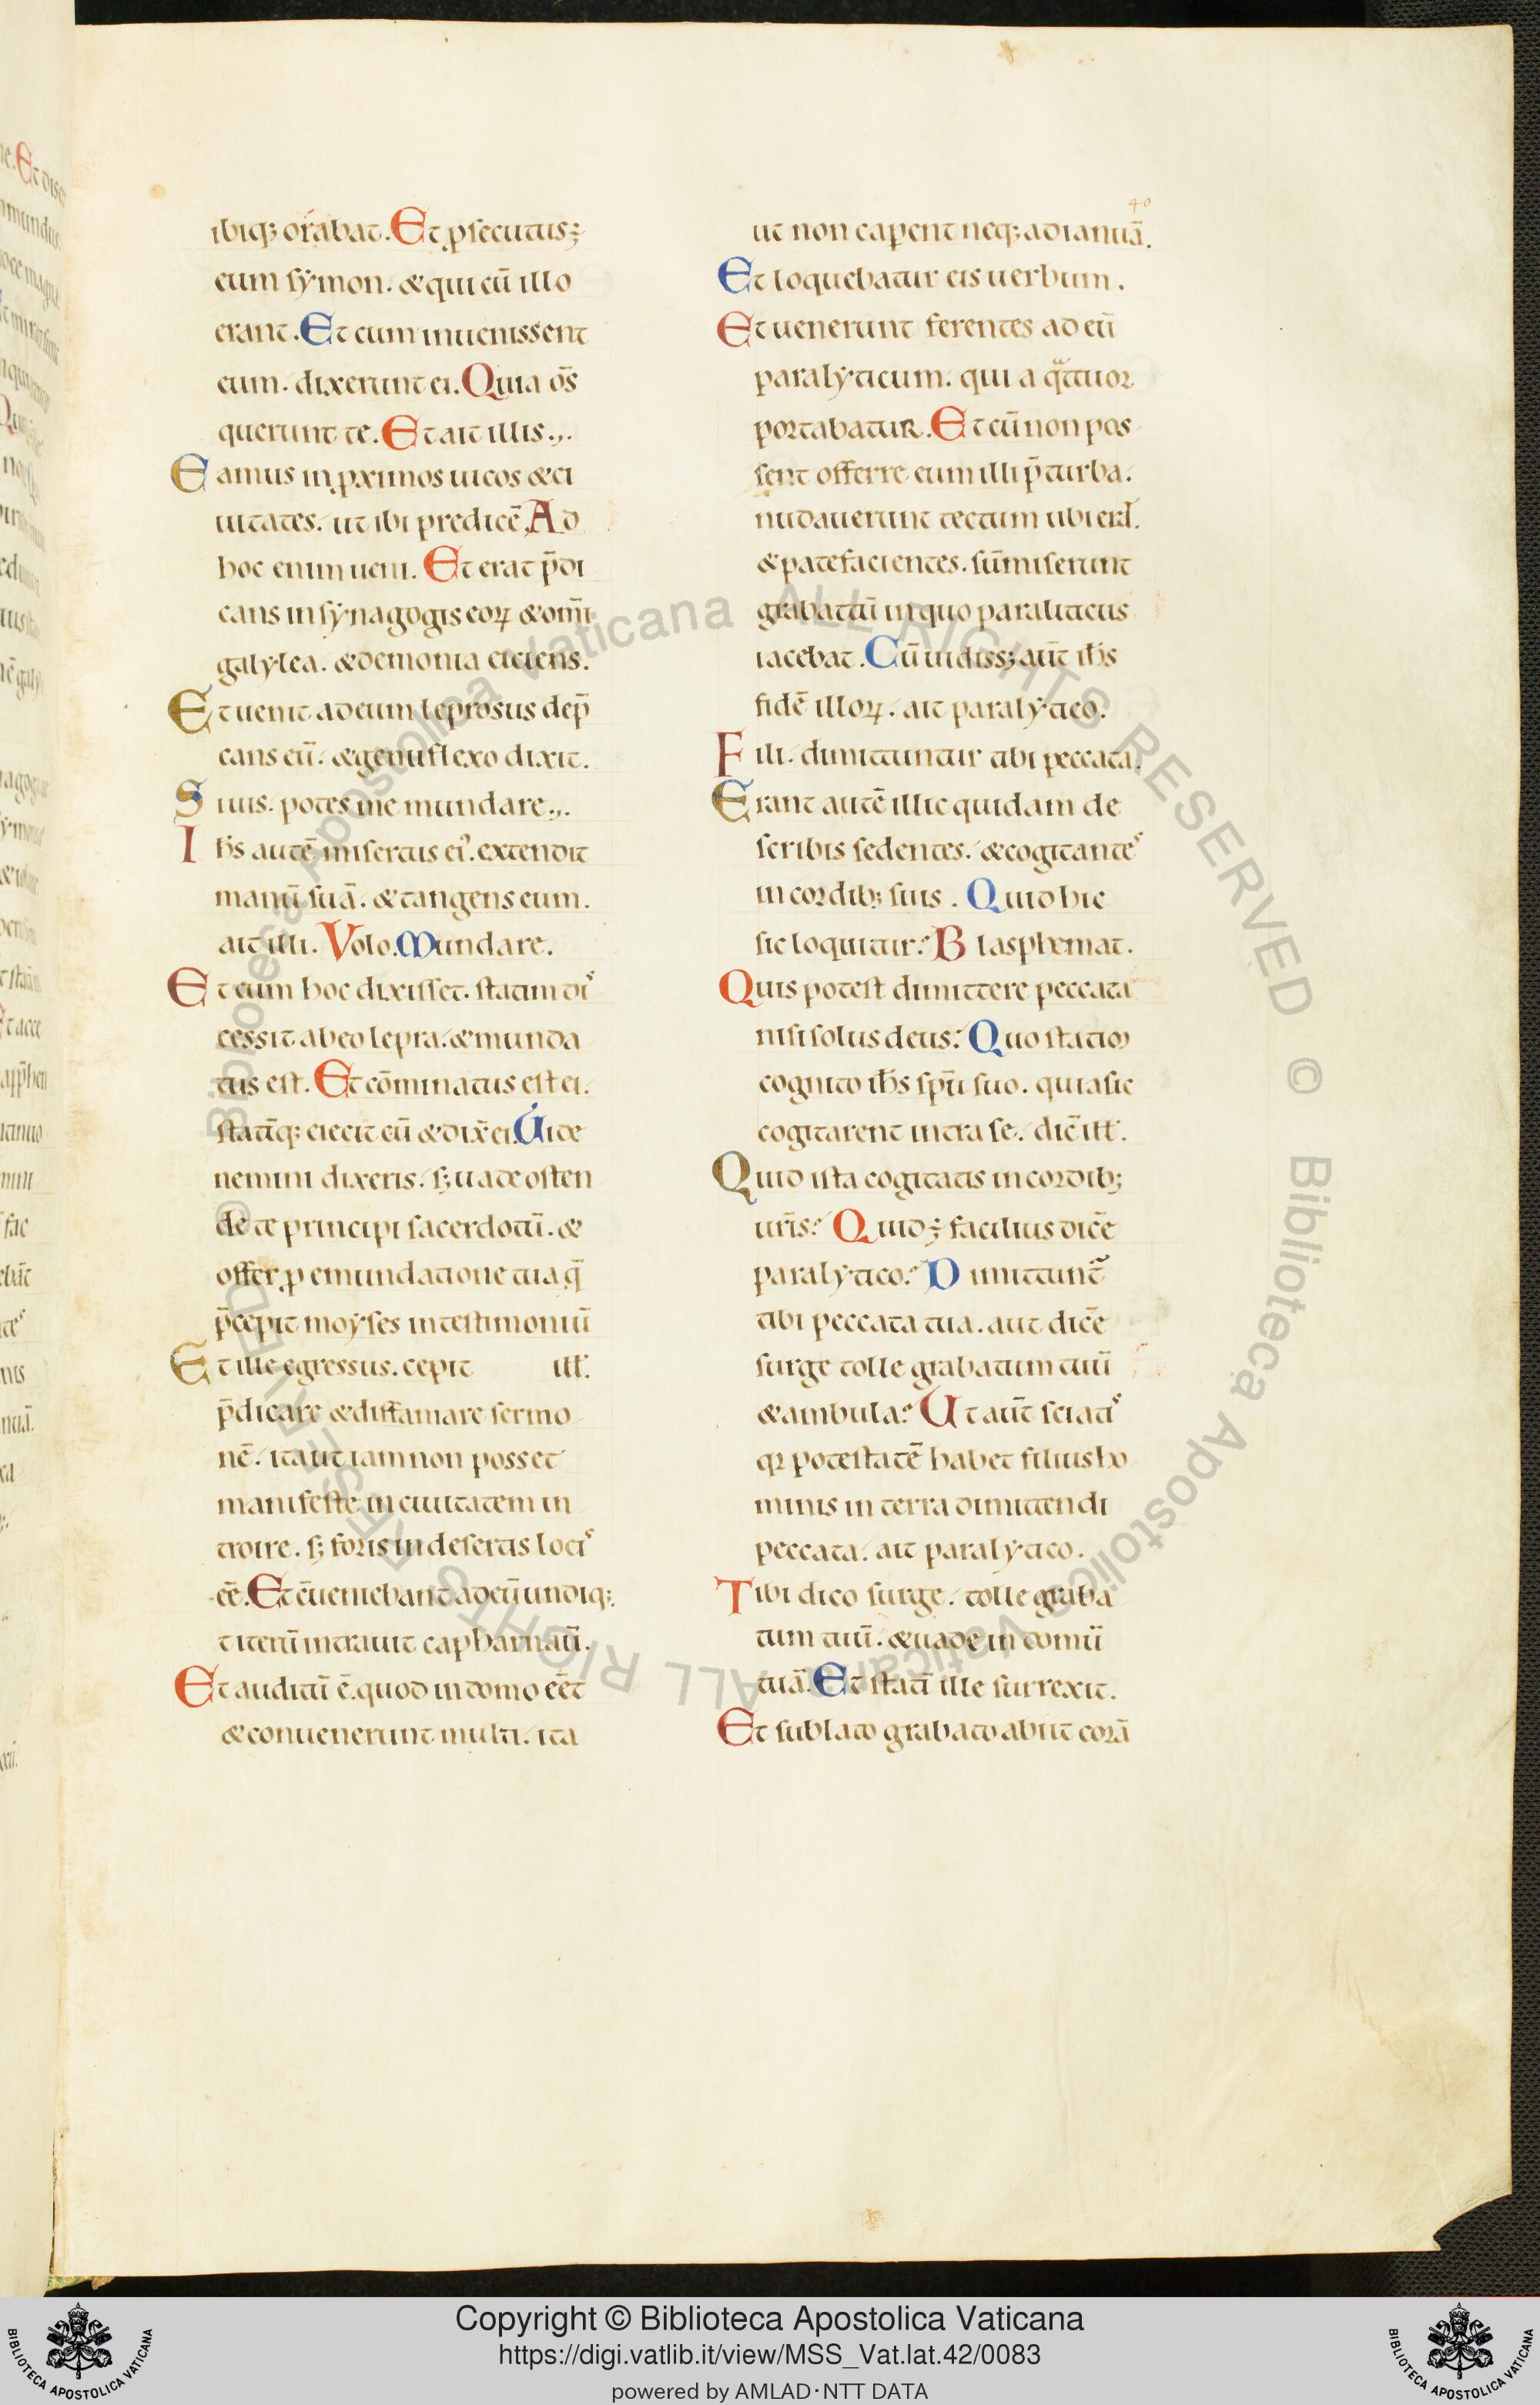 ibiq; orabat. Et ꝓsecutus ;
eum symon. & qui cū illo
erant. Et cum inuenissent
eum. dixerunt ei. Quia oṁs
querunt te. Et ait illis.,.
Eamus in ꝓximos uicos & ci
uitates. ut ibi predicē. Ad
hoc enim ueni. Et erat p̄di
cans in synagogis eoꝝ & om̄i
galylea. & demonia eiciens.
Et uenit ad eum leprosus dep̄
cans eū. & genuflexo dixit.
Si uis. potes me mundare.,.
Ih̄s autē misertus ei'. extendit
manū suā. & tangens eum.
ait illi. Volo. Mundare.
Et cum hoc dixisset. statim dis
cessit ab eo lepra. & munda
tus est. Et cōminatus est ei.
statīq; eiecit eū & dix̄ ei. Uide
nemini dixeris. s; uade osten
de te principi sacerdotū. &
offer ꝓ emundatione tua q̄
p̄cepit moyses in testimoniū
Et ille egressus. cepit ill'.
p̄dicare & diffamare sermo
nē. ita ut iam non posset
manifeste in ciuitatem in
troire. s; foris in desertis locis
eē. Et cūeniebant ad eū undiq;.
t iterū intrauit capharnaū.
Et auditū ē. quod in domo eēt
& conuenerunt multi. ita
40
ut non caperent neq; ad ianuā.
Et loquebatur eis uerbum.
Et uenerunt ferentes ad eū
paralyticum. qui a qͣttuor
portabatur. Et cū non pos
sent offerre eum illi p̄ turba.
nudauerunt tectum ubi erat.
& patefacientes. sūmiserunt
grabattū in quo paraliticus
iacebat. Cū uidiss; aūt ih̄s
fidē illoꝝ. ait paralytico.
Fili. dimittuntur tibi peccata.
Erant autē illic quidam de
scribis sedentes. & cogitantes
in cordib; suis. Quid hic
sic loquitur? Blasphemat.
Quis potest dimittere peccata
nisi solus deus? Quo statim
cognito ih̄s sp̄u suo. quia sic
cogitarent intra se. dic̄ ill'.
Quid ista cogitatis in cordib;
ur̄is? Quid ; facilius dic̄e
paralytico? Dimittunt̄
tibi peccata tua. aut dic̄e
surge tolle grabatum tuū
& ambula? Ut aūt sciatis
qꝛ potestatē habet filius ho
minis in terra dimittendi
peccata. ait paralytico.
Tibi dico surge. tolle graba
tum tuū. & uade in domū
tuā. Et statī ille surrexit.
Et sublato grabato abiit corā
Copyright © Biblioteca Apostolica Vaticana
https://digi.vatlib.it/view/MSS_Vat.lat.42/0083
powered by AMLAD·NTT DATA